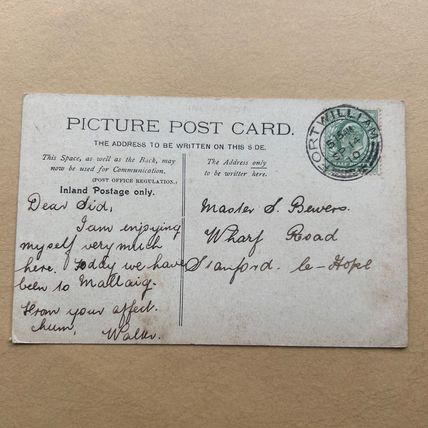 PICTURE POST CARD.
THE ADDRESS TO BE WRITTEN ON THIS SIDE.
This Space, as well as the Back, may
now be used for Communication.
(POST OFFICE REGULATION.)
Inland Postage only.
The Address only
to be writter here.
FORT WILLIAM
Dear Sid,
I am enjoying
myself very much
here. Today we have
been to Mallaig.
From your affect.
chum,
Master S. Bewers.
Wharf Road
Stanford-le-Hope